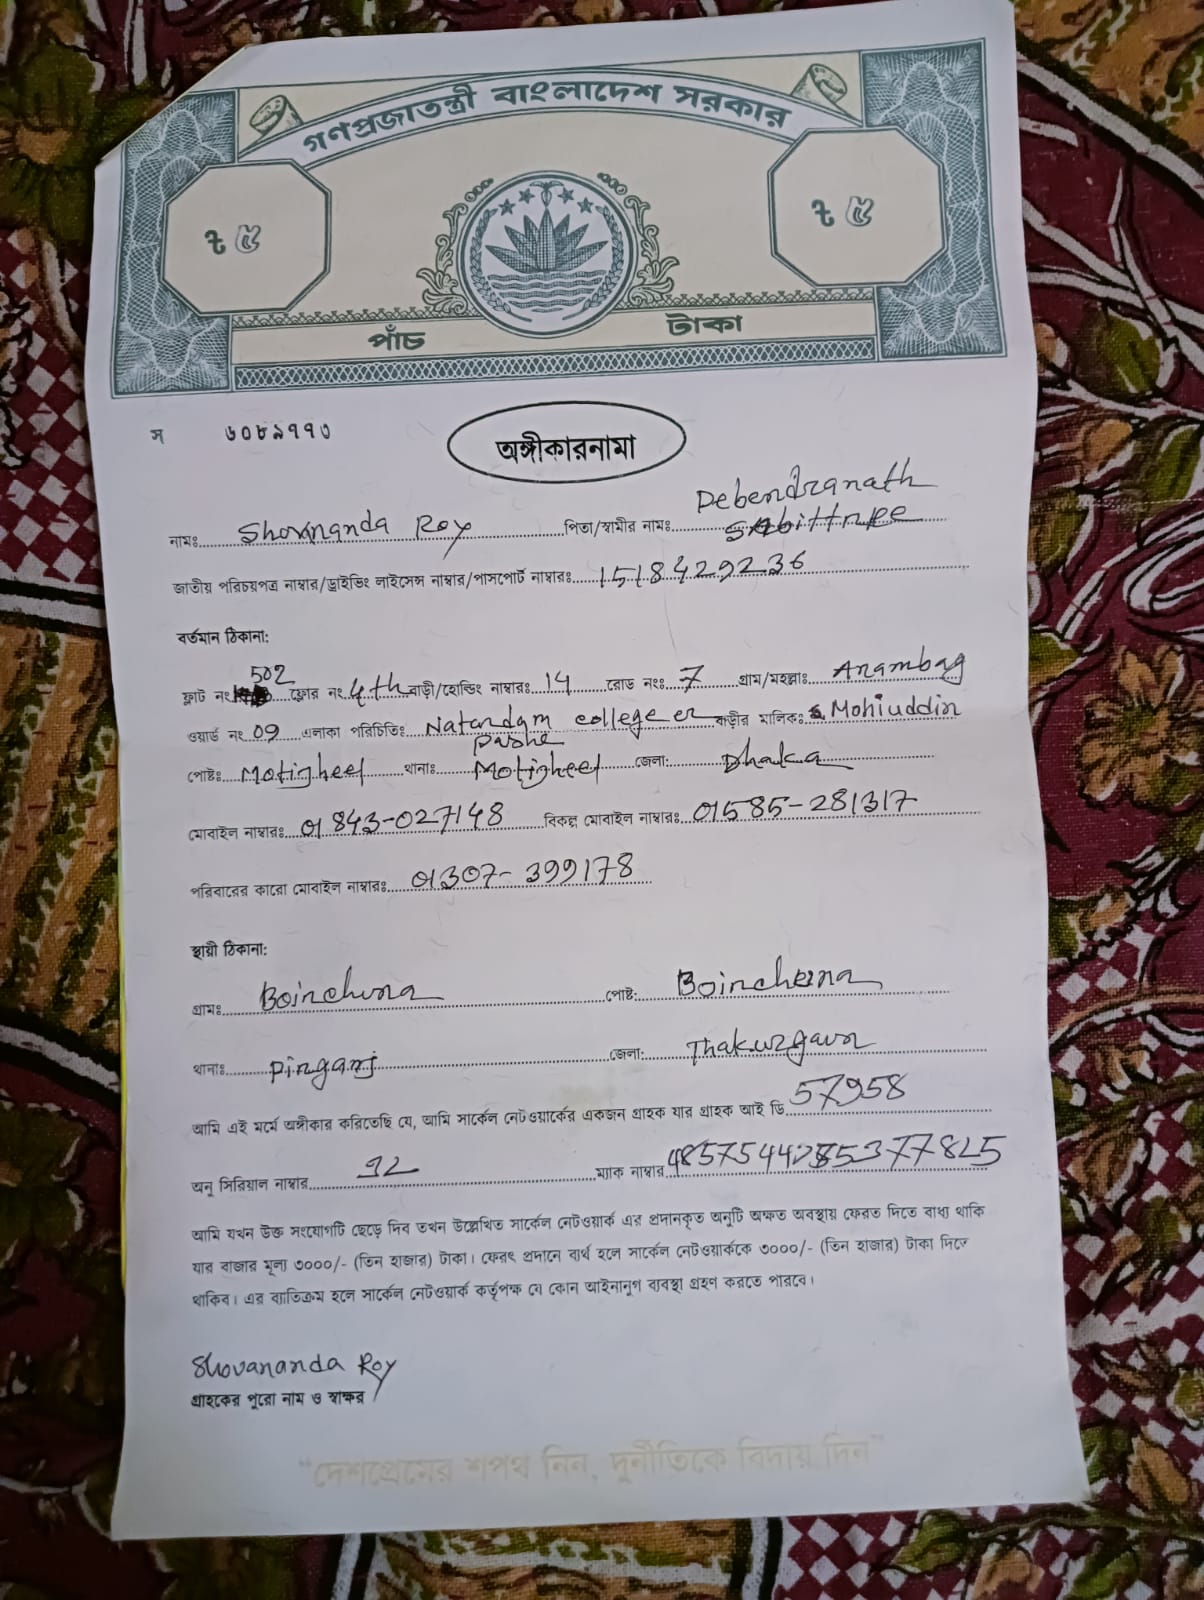 গণপ্রজাতন্ত্রী বাংলাদেশ সরকার
৳ ৫ ৳ ৫
পাঁচ টাকা
স ৬০৮৯৭৭৩
অঙ্গীকারনামা
নামঃ Shovananda Roy পিতা/স্বামীর নামঃ Debendranath
জাতীয় পরিচয়পত্র নাম্বার/ড্রাইভিং লাইসেন্স নাম্বার/পাসপোর্ট নাম্বারঃ 1518429236
বর্তমান ঠিকানা:
ফ্লাট নং 502 ফ্লোর নং 4th বাড়ী/হোল্ডিং নাম্বারঃ 14 রোড নংঃ 7 গ্রাম/মহল্লাঃ Arambag
ওয়ার্ড নং 09 এলাকা পরিচিতিঃ Natardam college er Pashe বাড়ীর মালিকঃ Mohiuddin
পোষ্টঃ Motigheel থানাঃ Motigheel জেলা: Dhaka
মোবাইল নাম্বারঃ 01843-027148 বিকল্প মোবাইল নাম্বারঃ 01585-281317
পরিবারের কারো মোবাইল নাম্বারঃ 01307-399178
স্থায়ী ঠিকানা:
গ্রামঃ Boirchuna পোষ্ট: Boirchuna
থানাঃ Pirganj জেলা: Thakurgaon
আমি এই মর্মে অঙ্গীকার করিতেছি যে, আমি সার্কেল নেটওয়ার্কের একজন গ্রাহক যার গ্রাহক আই ডি 57958
অনু সিরিয়াল নাম্বার 92 ম্যাক নাম্বার
আমি যখন উক্ত সংযোগটি ছেড়ে দিব তখন উল্লেখিত সার্কেল নেটওয়ার্ক এর প্রদানকৃত অনুটি অক্ষত অবস্থায় ফেরত দিতে বাধ্য থাকি
যার বাজার মূল্য ৩০০০/- (তিন হাজার) টাকা। ফেরৎ প্রদানে ব্যর্থ হলে সার্কেল নেটওয়ার্ককে ৩০০০/- (তিন হাজার) টাকা দিতে
থাকিব। এর ব্যতিক্রম হলে সার্কেল নেটওয়ার্ক কর্তৃপক্ষ যে কোন আইনানুগ ব্যবস্থা গ্রহণ করতে পারবে।
Shovananda Roy
গ্রাহকের পুরো নাম ও স্বাক্ষর
"দেশপ্রেমের শপথ নিন, দুর্নীতিকে বিদায় দিন"